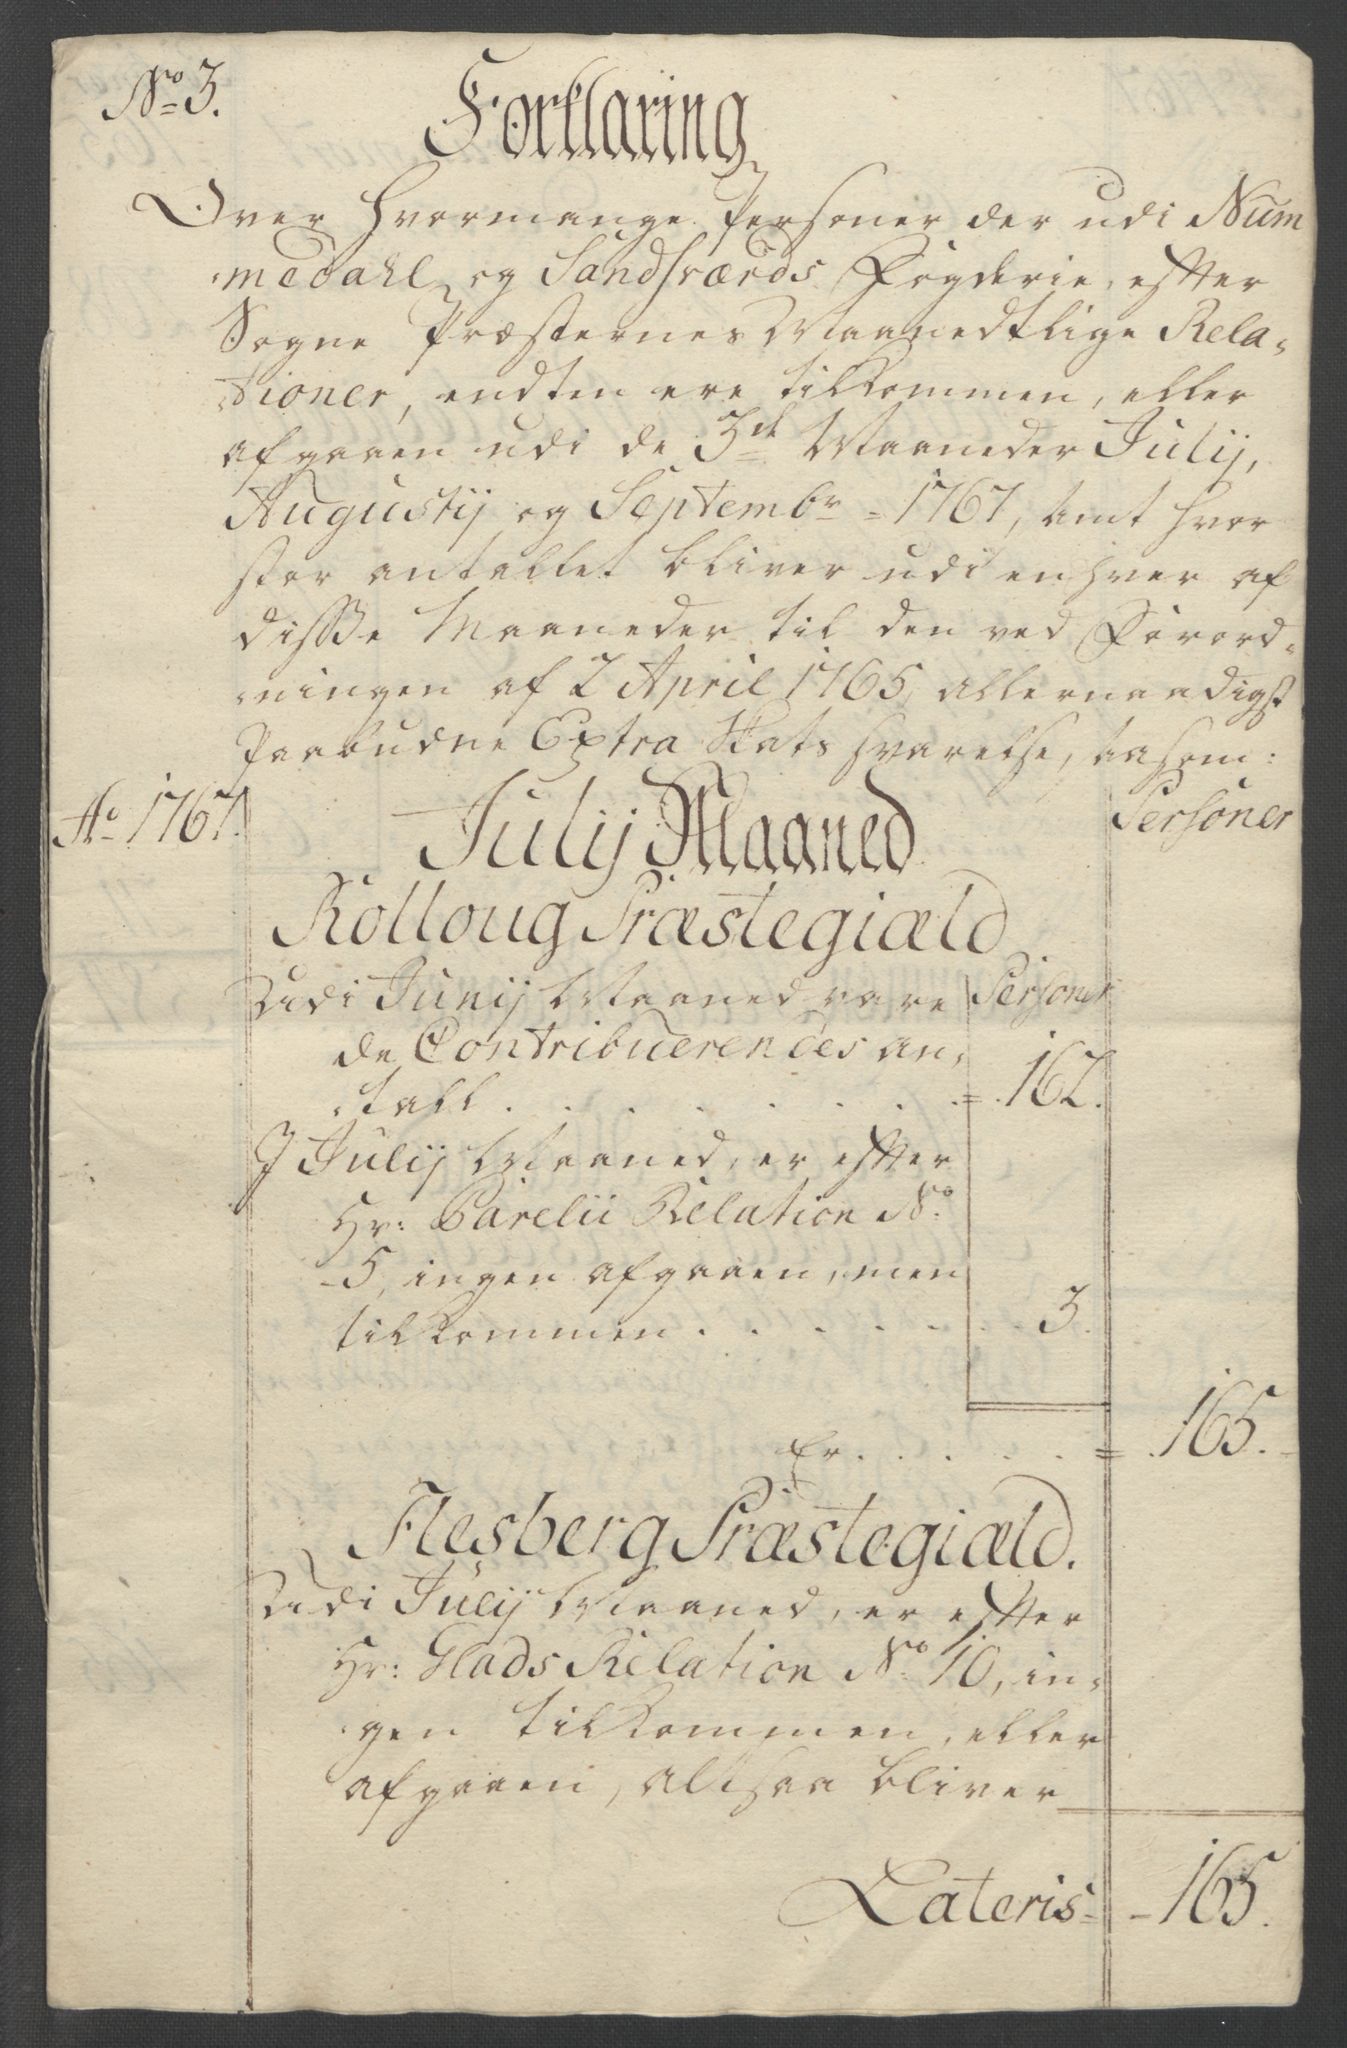 No 3.
Forklaring
Over hvormange Personer der udi Num
medahl og Sandsværds Fogderie, efter
Sogne Præsternes Maanedtlige Rela-
tioner, endten ere tilkommen, eller
afgaaen udi de 3de Maaneder Julij,
Augustij og Septembr = 1767, samt hvor
stor antallet bliver udi enhver af
disse Maaneder til den ved Forord-
ningen af 2 April 1765 allernaadigst
Paabudne Extra Skats Svarelse, saasom:
Ao 1767.
Personer
Julij Maaned
Rolloug Præstegiæld
Udi Junij Maaned vare
Personer
de Contribuerendes an-
tall . . . . . . . = 162.
I Julij Maaned, er efter
Hr: Carelii Relation No
5, ingen afgaaen, men
tilkommen . . . . . . 3.
Er . . . . . = 165.
Flesberg Præstegiæld.
Udi Julij Maaned, er efter
Hr: Glads Relation No 10, in-
gen tilkommen, eller
afgaaen, altsaa bliver
Lateris = 165.